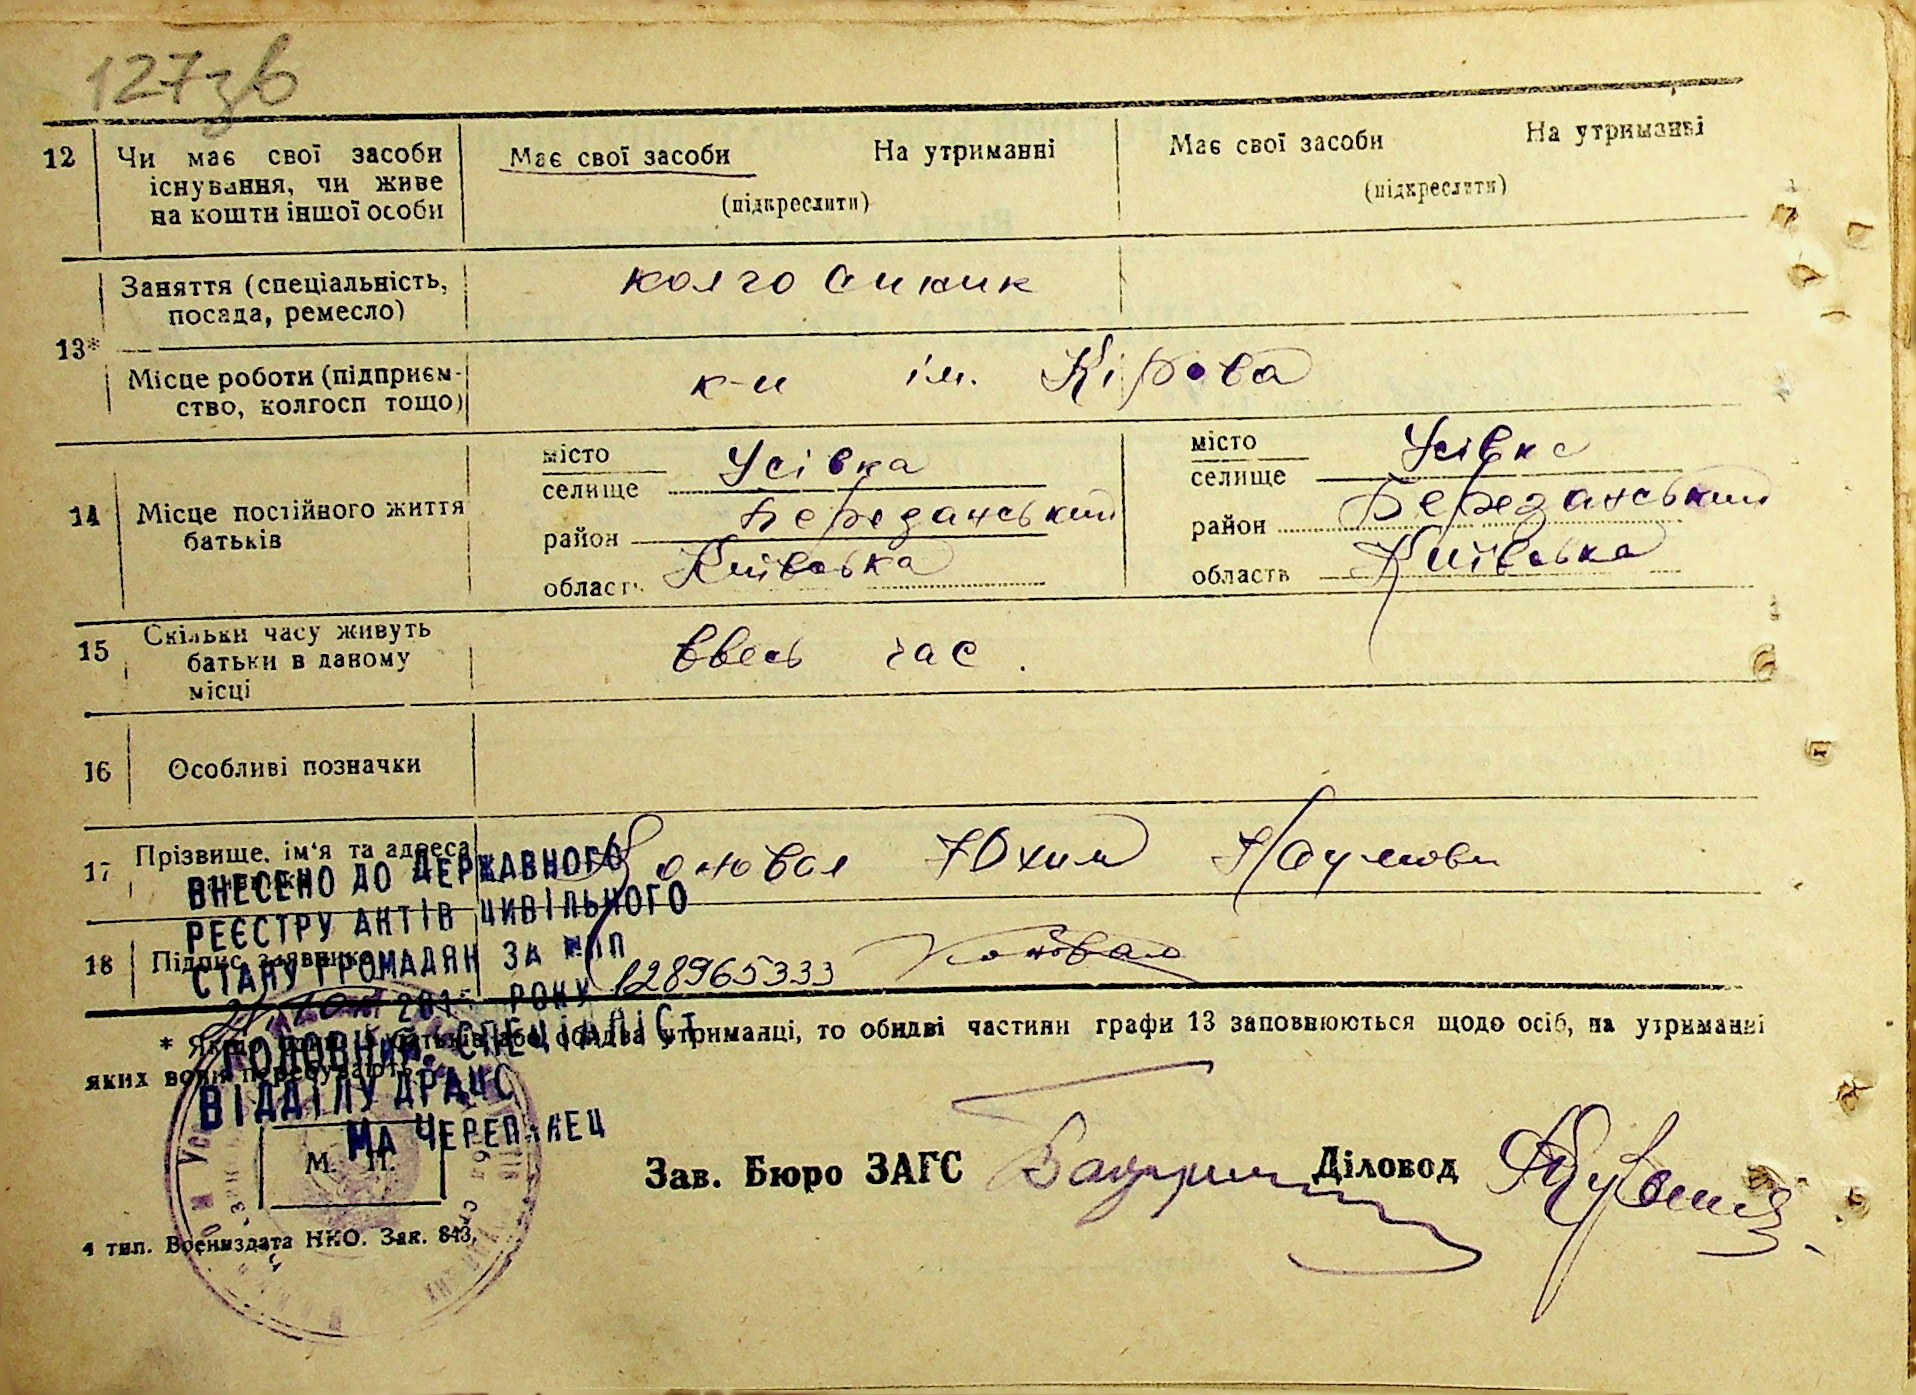 127зв
12 Чи має свої засоби існування, чи живе на кошти іншої особи
Має свої засоби На утриманні
(підкреслити)
Має свої засоби На утриманні
(підкреслити)
13*
Заняття (спеціальність, посада, ремесло)
колгоспник
Місце роботи (підприємство, колгосп тощо)
к-п ім. Кірова
14 Місце постійного життя батьків
місто
селище Усівка
район Березанський
область Київська
місто
селище Усівка
район Березанський
область Київська
15 Скільки часу живуть батьки в даному місці
ввесь час.
16 Особливі позначки
17 Прізвище, ім'я та адреса
Коновал Юхим Наумови
18 Підпис заявника
Коновал
ВНЕСЕНО ДО ДЕРЖАВНОГО
РЕЄСТРУ АКТІВ ЦИВІЛЬНОГО
СТАНУ ГРОМАДЯН ЗА №
128965333
РОКУ
ГОЛОВНИЙ СПЕЦІАЛІСТ
ВІДДІЛУ ДРАЦС
* Якщо батьків або обидва утриманці, то обидві частини графи 13 заповнюються щодо осіб, на утриманні
яких вони перебувають.
М. П.
Зав. Бюро ЗАГС
Діловод
4 тип. Воениздата НКО. Зак. 843.